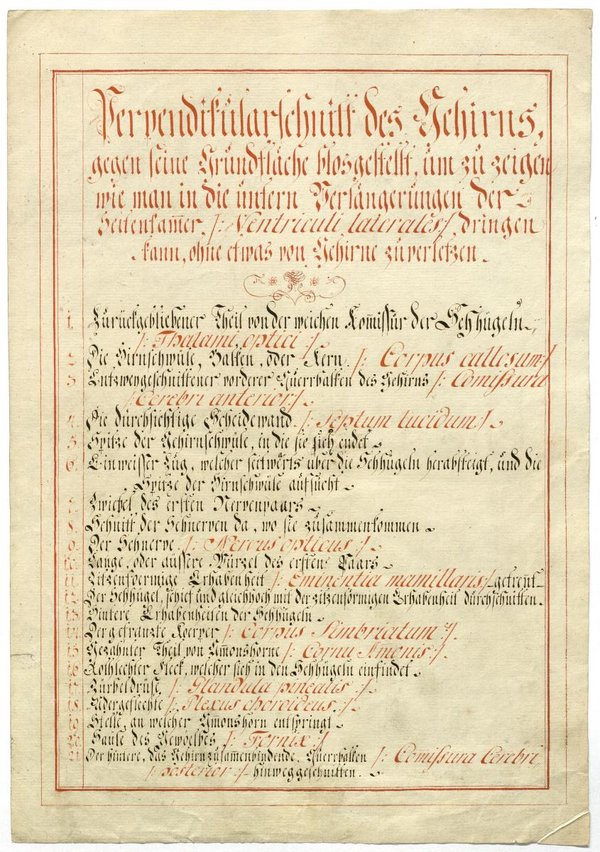 Perpendikularschnitt des Gehirns,
gegen seine Grundfläche blosgestellt, um zu zeigen
wie man in die untern Verlängerungen der
Seitenkam̅er /: Ventriculi laterales :/ dringen
kann, ohne etwas von Gehirne zu verletzen.
1. Zurückgebliebener Theil von der weichen Kom̅issur der Sehhügeln
/: Thalami optici :/
2. Die Hirnschwüle, Balken, oder Kern /: Corpus callosum :/
3. Entzweygeschnittener vorderer Querrbalken des Gehirns /: Com̅issura
Cerebri anterior :/
4. Die durchsichtige Scheidewand /: Septum lucidum :/
5. Spitze der Gehirnschwüle, in die sie sich endet.
6. Ein weisser Zug, welcher seitwerts über die Sehhügeln herabsteigt, und die
Spitze der Hirnschwüle aufsucht.
7. Zwiebel des ersten Nervenpaars.
8. Schnitt der Sehnerven da, wo sie zusammenkommen.
9. Der Sehnerve /: Nervus opticus :/
10. Lange, oder äussere Wurzel des ersten Paars.
11. Zitzenförmige Erhabenheit /: Eminentia mamillaris :/ getrent.
12. Der Sehhügel, schief und gleichhoch mit der zitzenförmigen Erhabenheit durchschnitten.
13. Hintere Erhabenheiten der Sehhügeln.
14. Der gefranzte Koerper /: Corpus Fimbriatum :/
15. Gezahnter Theil von Amonshorne /: Cornu Amonis :/
16. Röthlechter Fleck, welcher sich in den Sehhügeln einfindet.
17. Zürbeldrüse /: Glandula pinealis :/
18. Adergeflechte /: Plexus choroideus :/
19. Stelle, an welcher Amonshorn entspringt.
20. Saule des Gewoelbes /: Fornix :/
21. Der hintere, das Gehirn zusamenbindende Querrbalken /: Com̅issura Cerebri
posterior :/ hinweggeschnitten.